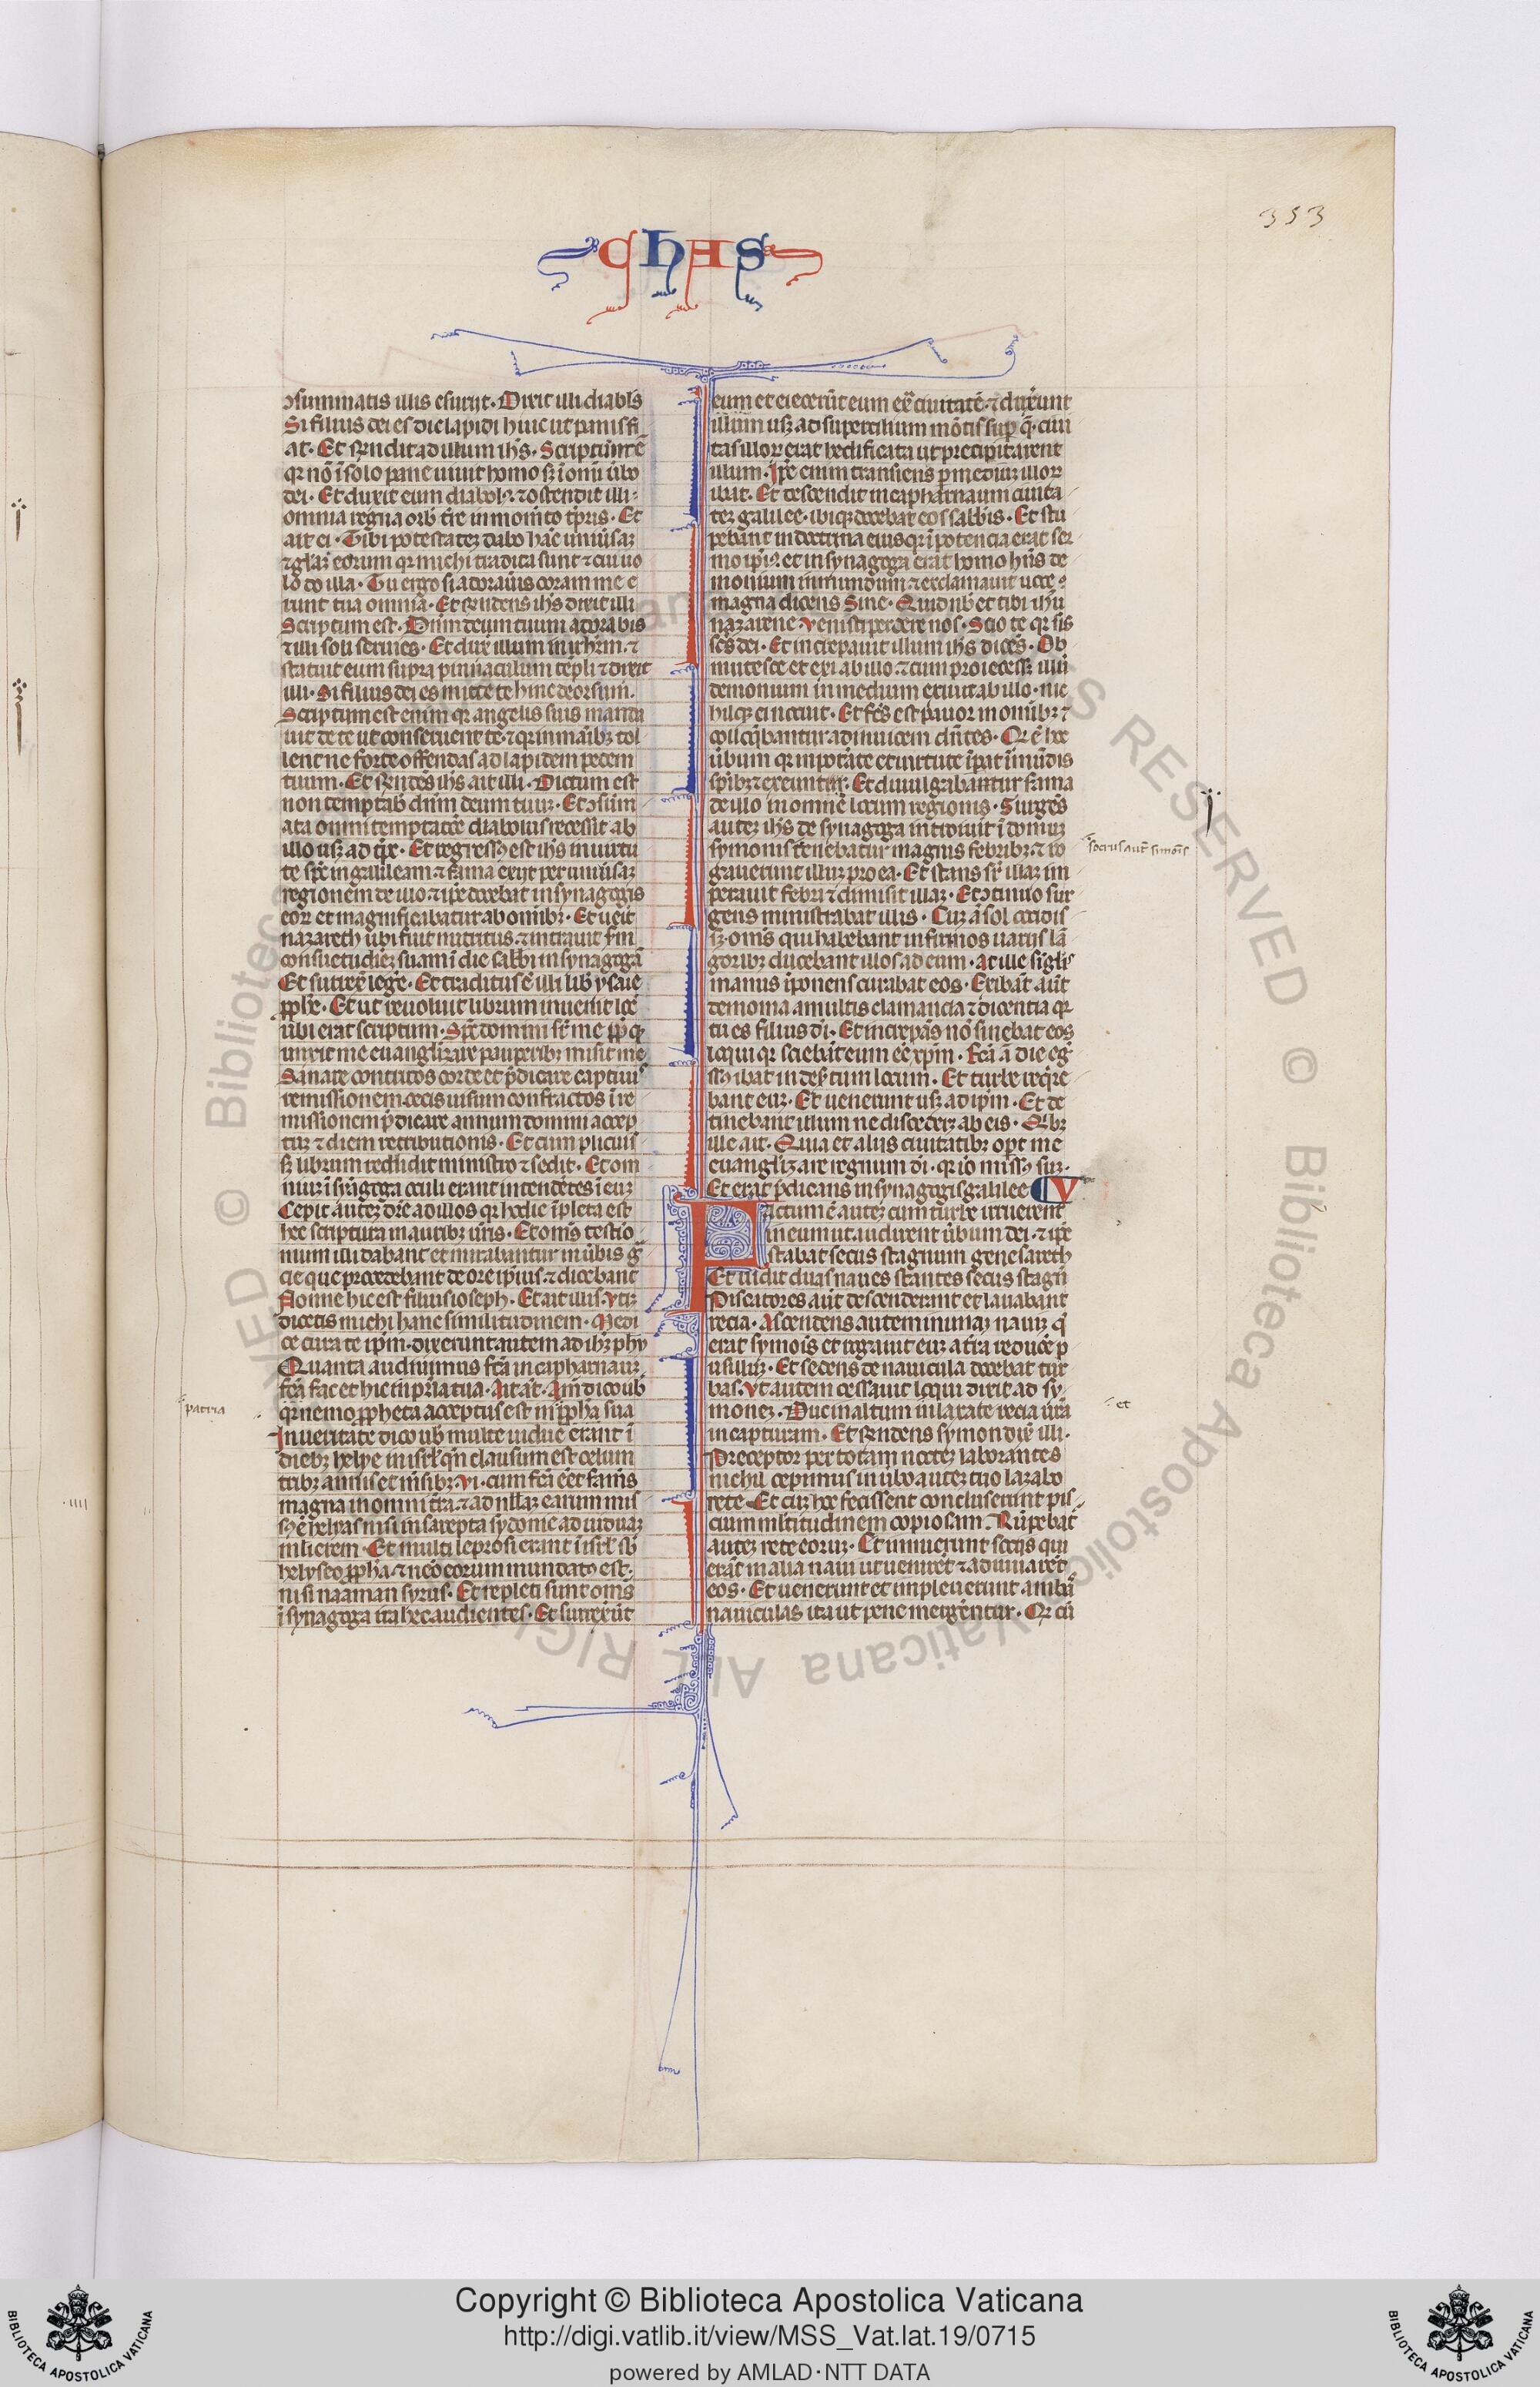 353
CHAS
ↄsummatis illis esurijt. Dixit illi diabl's
Si filius dei es dic lapidi huic ut panis fi
at. Et r̄ndit ad illum ih's. Scriptum ē
qr nō ī solo pane uiuit homo sȝ ī oni ūbo
dei. Et duxit eum diabolꝰ. ⁊ ostendit illi
omnia regna orb' tr̄e in momēto tp̄ris. Et
ait ei. Tibi potestateȝ dabo hāc uniūsaȝ
⁊ gl'aȝ eorum qr michi tradita sunt ⁊ cui uo
lo do illa. Tu ergo si adorau̾is coram me e
runt tua omnia. Et r̄ndens ih's dixit illi
Scriptum est. Dn̄m deum tuum adorabis
⁊ illi soli seruies. Et dux̾ illum in ihr̄lm. ⁊
statuit eum supra pinnaculum tēpli ⁊ dixit
illi. Si filius dei es mitte te hinc deorsum.
Scriptum est enim qr angelis suis manda
uit de te ut conseruent te. ⁊ qr in manibȝ tol
lent ne forte offendas ad lapidem pedem
tuum. Et r̄ndēs ih's ait illi. Dictum est
non temptab' dn̄m deum tuuȝ. Et ↄsum̄
ata omni temptatōe diabolus recessit ab
illo usȝ ad tp̄s. Et regressꝰ est ih's in uirtu
te sp̄s in galileam ⁊ fama exijt per uniūsaȝ
regionem de illo. ⁊ ip̄e docebat in synagogis
eoꝝ et magnificabatur ab omnibȝ. Et uēit
nazareth ubi fuit nutritus. ⁊ intrauit s̄m
consuetudineȝ suam ī die sabb'i in synagogā
Et surrex̾ leḡe. Et traditus ē illi lib̾ ysaie
ꝓph̄e. Et ut reuoluit librum inuenit locū
ubi erat scriptum. Sp̄s domini sr̄ me ꝓp q̄
unxit me euangl'izare pauperibȝ misit me
Sanare contritos corde et p̄dicare captiuis
remissionem. cecis uisum confractos ī re
missionem p̄dicare annum domini accep
tuȝ ⁊ diem retributionis. Et cum plicuis
sȝ librum reddidit ministro ⁊ sedit. Et om
niuȝ ī synagoga oculi erant intendētes ī euȝ
Cepit auteȝ dic̾e ad illos qr hodie īpleta est
hec scriptura in auribȝ ur̄is. Et om̄s testio
nium illi dabant et mirabantur in ūbis gr̄
cie que procedebant de ore ip̄ius. ⁊ dicebant
Nonne hic est filius ioseph. Et ait illis. Vtiȝ
dicetis michi hanc similitudinem. Medi
ce cura te ip̄m. dixerunt autem ad ihȝ ph̄y
Quanta audiuimus fc̄a in capharnauȝ
fc̄a fac et hic in pr̄ia tua. Ait aūt. Am̄ dico uob̾
qr nemo ꝓpheta acceptus est in ꝓph̄a sua
patria
In ueritate dico uob̾ multe uidue erant ī
diebȝ helye in isrl' qn̄ clausum est celum
tribȝ annis et m̄sibȝ. vi. cum fc̄a eēt fam̄s
magna in omni tr̄a. ⁊ ad nll'aȝ earum mis
sꝰ ē helyas nisi in sarepta sydonie ad uiduaȝ
mlierem. Et multi leprosi erant ī isrl' sb̾
helyseo ꝓph̄a. ⁊ nēo eorum mundatꝰ est.
nisi naaman syrus. Et repleti sunt om̄s
ī synagoga ira hec audientes. Et surrexe̾t
eum et eiecerūt eum ex̾ ciuitatē. ⁊ duxerunt
illum usȝ ad supercilium mōtis sup̾ q̄. ciui
tas illoꝝ erat hedificata ut precipitarent
illum. Ip̄e enim transiens p̾ mediuȝ illoꝝ
ibat. Et descendit in capharnaum ciuita
teȝ galilee. ibiqȝ docebat eos sabb'is. Et stu
pebant in doctrina eius qr ī potencia erat ser
mo ip̄iꝰ. et in synagoga erat homo hn̄s de
monium immundum ⁊ exclamauit uoce
magna dicens. Sine. Quid nob̾ et tibi ih̄u
nazarene. Venisti perdere nos. Scio te qr sis
sc̄s dei. Et increpauit illum ih's dicēs. Ob
mutesce et exi ab illo. ⁊ cum proiecissȝ illū
demonium in medium exiuit ab illo. nic
hilqȝ ei nocuit. Et fc̄s est pauor in omibȝ ⁊
colloq̄bantur ad inuicem dn̄tes. Qr̄ ē hoc
ūbum qr in potāte et uirtute īpat īmūdis
sp̄ibȝ ⁊ exeunt. Et diuulgabantur fama
de illo in omnē locum regionis. Surgēs
auteȝ ih's de synagoga introiuit ī domuȝ
symonis tenebatur magnis febribȝ. ⁊ ro
socrus aut̄ simōis
gauerunt illuȝ pro ea. Et stans sr̄ illaȝ im
perauit febri ⁊ dimisit illaȝ. Et ↄtinuo sur
gens ministrabat illis. Cuȝ ā sol occidis
sȝ. om̄s qui habebant infirmos uarijs lā
goribȝ ducebant illos ad eum. at ille sīgl'is
manus īponens curabat eos. Exibāt aūt
demonia a multis clamancia ⁊ dicentia qr
tu es filius di̾. Et increpās nō sinebat eos
loqui qr sciebāt eum eē xp̄m. Fc̄a ā die eg̾
ssꝰ ibat in des̾tum locum. Et turbe req̄re
bant euȝ. Et uenerunt usȝ ad ip̄m. Et de
tinebant illum ne discedereȝ ab eis. Qibȝ
ille ait. Quia et alijs ciuitatibȝ opȝ me
euangl'izare regnum di̾. qr iō missꝰ suȝ.
Et erat p̄dicans in synagogis galilee. V
Factum ē auteȝ cum turbe irruerent
in eum ut audirent ūbum dei. ⁊ ip̄e
stabat secus stagnum genesareth
Et uidit duas naues stantes secus stagn̄
Piscatores aūt descenderant et lauabant
recia. Ascendens autem in unaȝ nauȝ q̄
erat symōis et rogauit euȝ a tr̄a reduc̾e p
usilluȝ. Et sedens de nauicula docebat tur
bas. Vt autem cessauit loqui dixit ad sy
moneȝ. Duc in altum ⁊ laxate recia ur̄a
et
in capturam. Et r̄ndens symon dix̾ illi.
Preceptor per totam nocteȝ laborantes
nichil cepimus in ūbo auteȝ tuo laxabo
rete. Et cuȝ hoc fecissent concluserunt pis
cium ml'titudinem copiosam. Rūpebat̾
auteȝ rete eoruȝ. Et innuerunt socijs qui
erāt in alia naui ut uenirēt ⁊ adiuuarēt
eos. Et uenerunt et impleuerunt ambas
nauiculas ita ut pene mergentur. Qr̄ cū
Copyright © Biblioteca Apostolica Vaticana
http://digi.vatlib.it/view/MSS_Vat.lat.19/0715
powered by AMLAD·NTT DATA